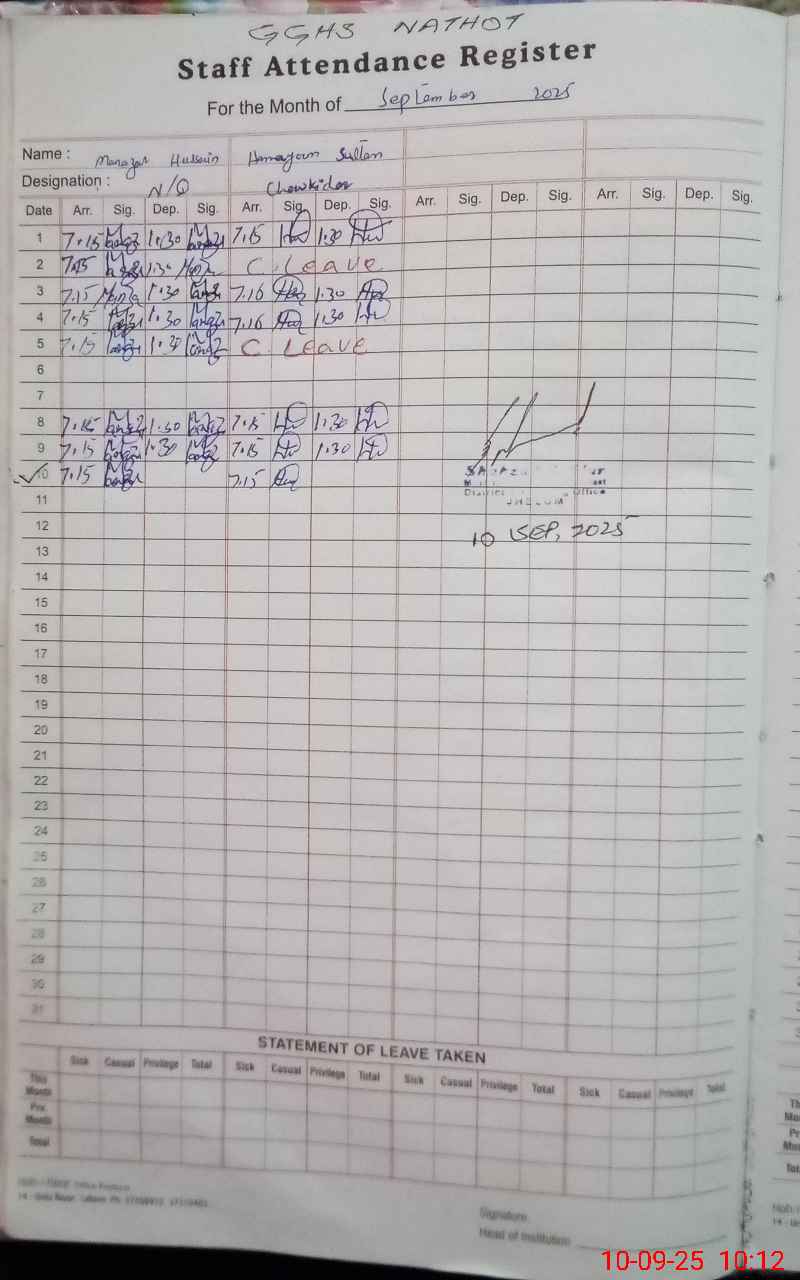 GGHS NATHOT
Staff Attendance Register
For the Month of September 2025
Name : Manazar Hussain Humayoun Sultan
Designation : N/Q Chowkidar
Date Arr. Sig. Dep. Sig. Arr. Sig. Dep. Sig. Arr. Sig. Dep. Sig. Arr. Sig. Dep. Sig.
1 7.15 1.30 7.15 1.30
2 7.15 1.30 C. Leave
3 7.15 1.30 7.16 1.30
4 7.15 1.30 7.16 1.30
5 7.15 1.30 C. Leave
6
7
8 7.15 1.30 7.15 1.30
9 7.15 1.30 7.15 1.30
10 7.15 7.15
District Office
JHELUM
11
10 SEP, 2025
12
13
14
15
16
17
18
19
20
21
22
23
24
25
26
27
28
29
30
31
STATEMENT OF LEAVE TAKEN
Sick Casual Privilege Total Sick Casual Privilege Total Sick Casual Privilege Total Sick Casual Privilege Total
This Month
Pre. Month
Total
Signature
Head of Institution
10-09-25 10:12